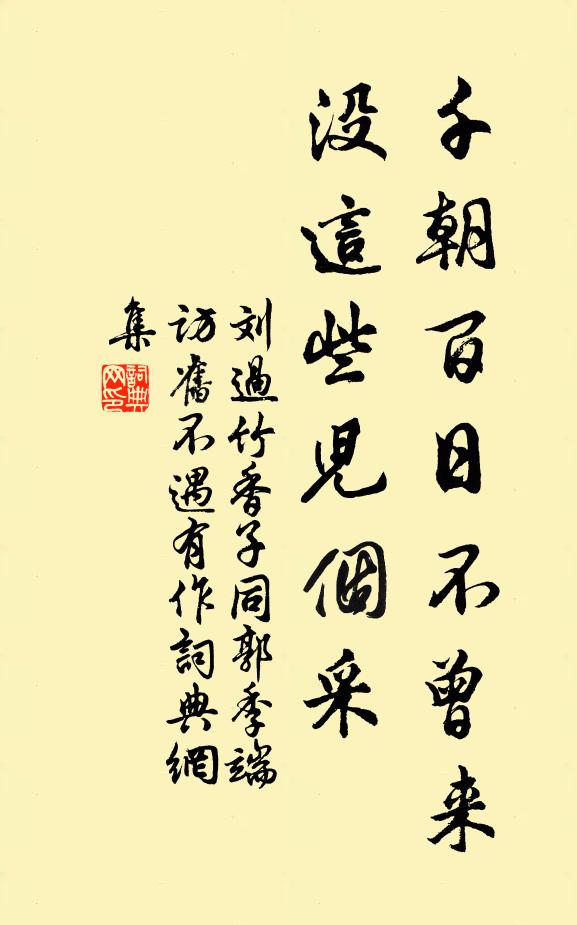 千朝百日不曾来
没這些児個采
刘過竹香子同郭季端
访舊不遇有作詞典網
集
詞典
网印